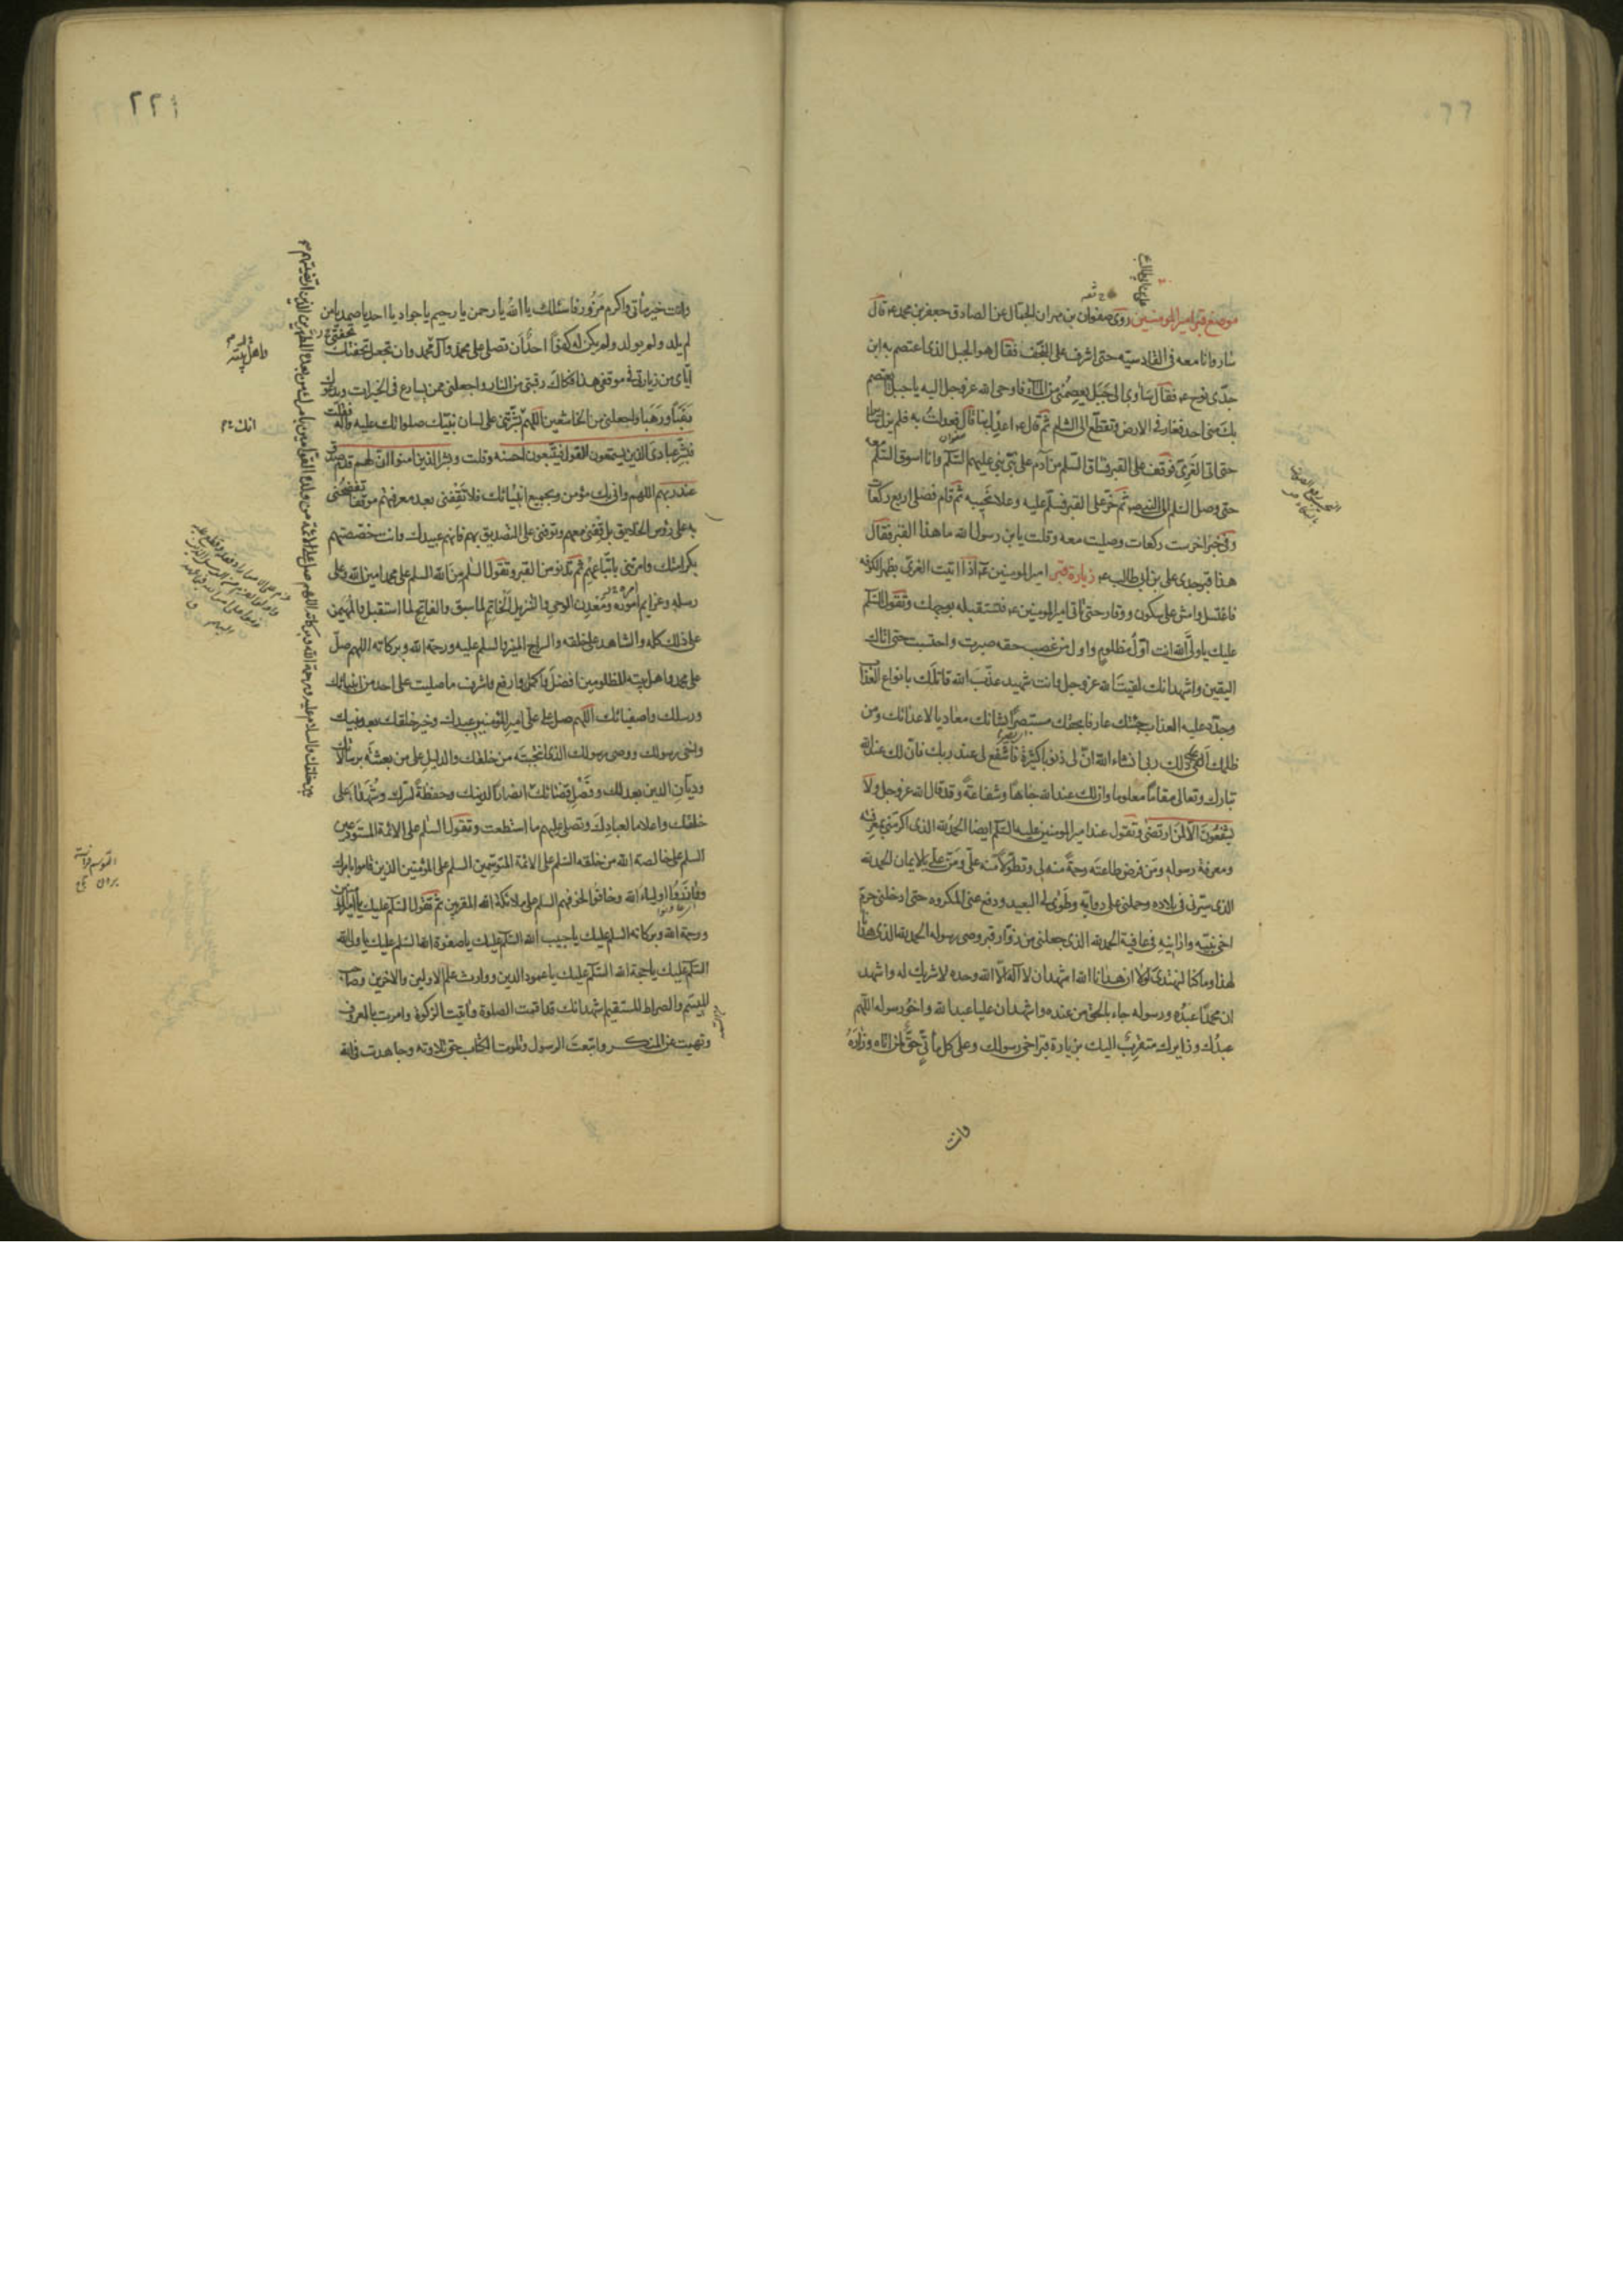 موضع قبر امير المومنين روى صفوان بن مهران الجمال عن الصادق جعفر بن محمد ع قال
سار وانا معه فى القادسيه حتى اشرف على النجف فقال هو الجبل الذى اعتصم به ابن
جدّى نوح ع فقال سَآوى الى جَبَل يعصِمُنى من المآء فاوحى الله عز وجل اليه يا جبل ايعتصم
بك منى احد فغار فى الارض وتقطّع الى الشام ثم قال ع اعدل بنا قال فعدلتُ به فلم يزل سايرا
حتى اتى الغَرِىّ فوقف على القبر فساق السّلم من آدم على نبىّ نبى عليهم السّلم وانا اسوق السّلم معه
حتى وصل السلم الى النبى ص ثم خرّ على القبر فسلّم عليه وعلا نحيبه ثم قام فصلى اربع ركعات
وفى خبر اخر ست ركعات وصليت معه وقلت يابن رسول الله ما هذا القبر فقال
هذا قبر جدى على بن ابى طالب ع زيارة قبر امير المومنين ع اذا اتيت الغرىّ بظهر الكوفه
فاغتسل وامش على سكون ووقار حتى تاتى امير المومنين ع فتستقبله بوجهك وتقول السّلم
عليك يا ولىَّ الله انت اوّلُ مظلومٍ واول من غصب حقه صبرت واحتسبت حتى اتاك
اليقين واشهد انك لقيتَ الله عز وجل وانت شهيد عذّبَ الله قاتلَك بانواع العذاب
وجدّد عليه العذاب جئتك عارفا بحقك مستبصرًا بشانك معاديا لاعدائك ومن
ظلمك القى على ذلك ربى ان شاء الله انّ لى ذنوبا كثيرة فاشفع لى عند ربك فانّ لك عند الله
تبارك وتعالى مقامًا معلوما وان لك عند الله جاهًا وشفاعةً وقد قال الله عز وجل ولا
يشفعُونَ الّا لمَن ارتضٰى وتقول عند امير المومنين عليه السّلم ايضا الحمد لله الذى اكرمنى بمعرفته
ومعرفة رسوله ومَن فرض طاعتَه رحمةً منه لى وتطوّلًا منه علىّ ومَنّ علىّ بالايمان الحمد لله
الذى سيّرنى فى بلاده وحملنى على دوابّه وطَوٰى لى البعيد ودفع عنى المكروه حتى ادخلنى حرم
اخى نبيّه وارانيه فى عافية الحمد لله الذى جعلنى من زوّار قبر وصى رسوله الحمد لله الذى هدانا
لهذا وما كنا لنهتدى لولا ان هدانا الله اشهد ان لا اله الّا الله وحده لا شريك له واشهد
ان محمدًا عبدُه ورسوله جاء بالحق من عنده واشهد ان عليا عبد الله واخُو رسوله اللّهم
عبدُك وزايرك متقربٌ اليك بزيارة قبر اخى رسولك وعلى كل مأتىّ حقّ لمن اتاه وزارَهُ
وانت
٢٢١
وانت خير مأتى واكرم مَزُور فاسئلك يا الله يا رحمن يا رحيم يا جواد يا احد يا صمد يا من
لم يلد ولم يولد ولم يكن له كفوًا احدٌ ان تصلى على محمد وآل محمد وان تجعل تحفتك
ايّاى من زيارتى فى موقفى هذا فكاك رقبتى من النار واجعلنى ممن يسارع فى الخيرات ويدعوك
رَغَبًا ورَهَبا واجعلنى من الخاشعين اللهم بشّرتنى على لسان نبيّك صلواتك عليه وآله فقلت
فبشِّر عبادى الذين يستمعون القول فيتّبعون احسنه وقلت وبشر الذين امنوا انّ لهم قدم صدق
عند ربهم اللهم وانى بك مؤمن وبجميع انبيائك فلا تقِفْنى بعد معرفتهم موقفا تفضحُنى
به على رؤس الخلايق بل قِفْنى معهم وتوفنى على التصديق بهم فانهم عبيدك وانت خصّصتهم
بكرامتك وامرتنى باتّباعهم ثم تدنو من القبر وتقول السّلم من الله السلم على محمد امين الله وعلى
رسله وعزايم اموره ومَعْدِن الوحى والتنزيل الخاتم لما سبق والفاتح لما استقبل والمهيمن
على ذلك كله والشاهد على خلقه والسراج المنير والسلم عليه ورحمة الله وبركاته اللهم صلّ
على محمد واهل بيته المظلومين افضلَ واكمل وارفع واشرف ما صليت على احد من انبيائك
ورسلك واصفيائك اللّهم صل على علىّ امير المؤمنين عبدك وخير خلقك بعد نبيك
واخى رسولك ووصى رسولك الذى انتجبتَه من خلقك والدليلِ على من بعثتَه برسالاتك
وديّانِ الدين بعدلك وفَصْلِ قضائك
خلقك واعلاما لعبادِكَ وتصلى عليهم ما استطعت وتقول السّلم على الائمة المستودعين
السلم على خالصة الله من خلقه السّلم على الائمة المتوسّمين السلم على المؤمنين الذين قاموا بامرك
ووازَرُوا اولياءَ الله وخافُوا لخوفهم السلم على ملائكة الله المقربين ثمّ تقول السّلم عليك يا امير المؤمنين
ورحمة الله وبركاته السلم عليك يا حبيب الله السّلم عليك يا صفوة الله السّلم عليك يا ولى الله
السّلم عليك يا حجة الله السّلم عليك يا عمود الدين ووارث علم الاولين والاخرين وصاحب
المِيسَم والصراط المستقيم اشهد انك قد اقمت الصلوة وآتيت الزكوة وامرت بالمعروف
ونهيت عن المنكر واتبعتَ الرسول وتلوت الكتاب حق تلاوته وجاهدت فى الله